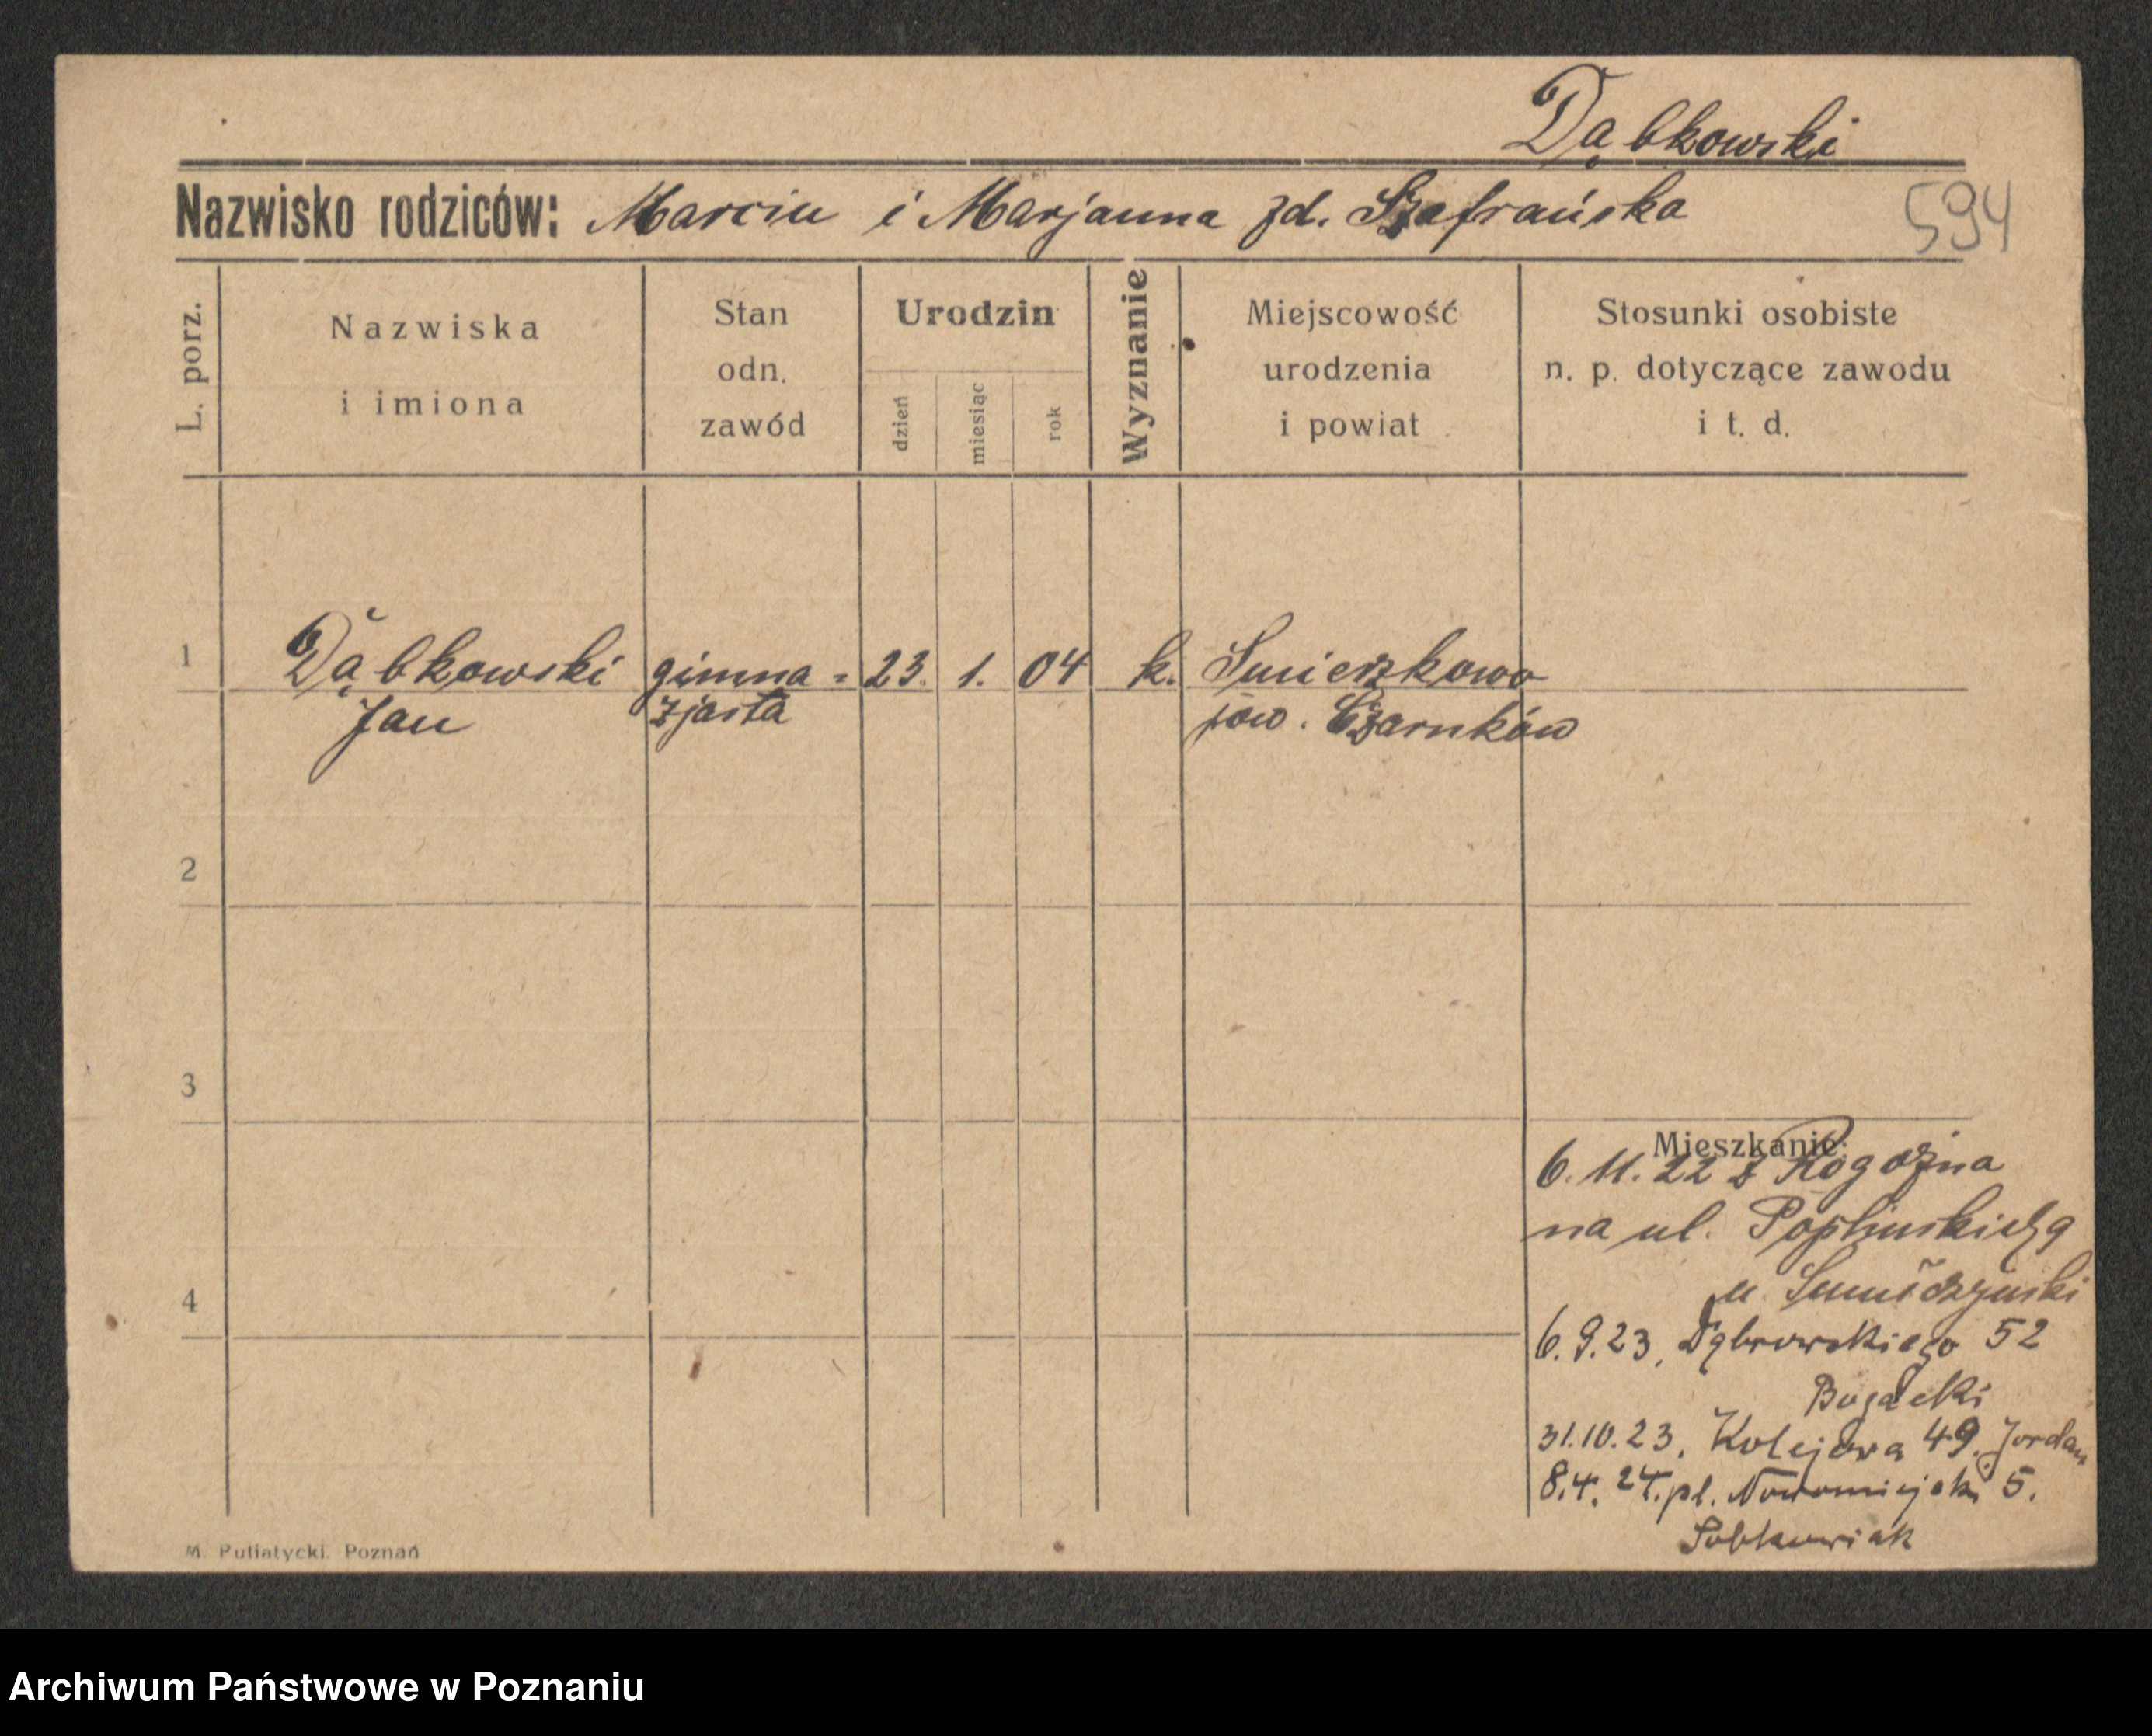 Dąbkowski
Nazwisko rodziców: Marcin i Marjanna zd. Szafrańska
594
L. porz.
Nazwiska
i imiona
Stan
odn.
zawód
Urodzin
dzień
miesiąc
rok
Wyznanie
Miejscowość
urodzenia
i powiat
Stosunki osobiste
n. p. dotyczące zawodu
i t. d.
1 Dąbkowski gimna= 23. 1. 04 k. Smieszkowo
Jan zjasta pow. Czarnków
2
3
Mieszkanie:
6. 11. 22 z Rogoźna
na ul.
4
6. 9. 23, Dąbrowskiego 52
31.10.23, Kolejowa 49. Jordan
8.4. 24. pl. Nowomiejski 5.
Sobkowiak
M. Putiatycki, Poznań
Archiwum Państwowe w Poznaniu